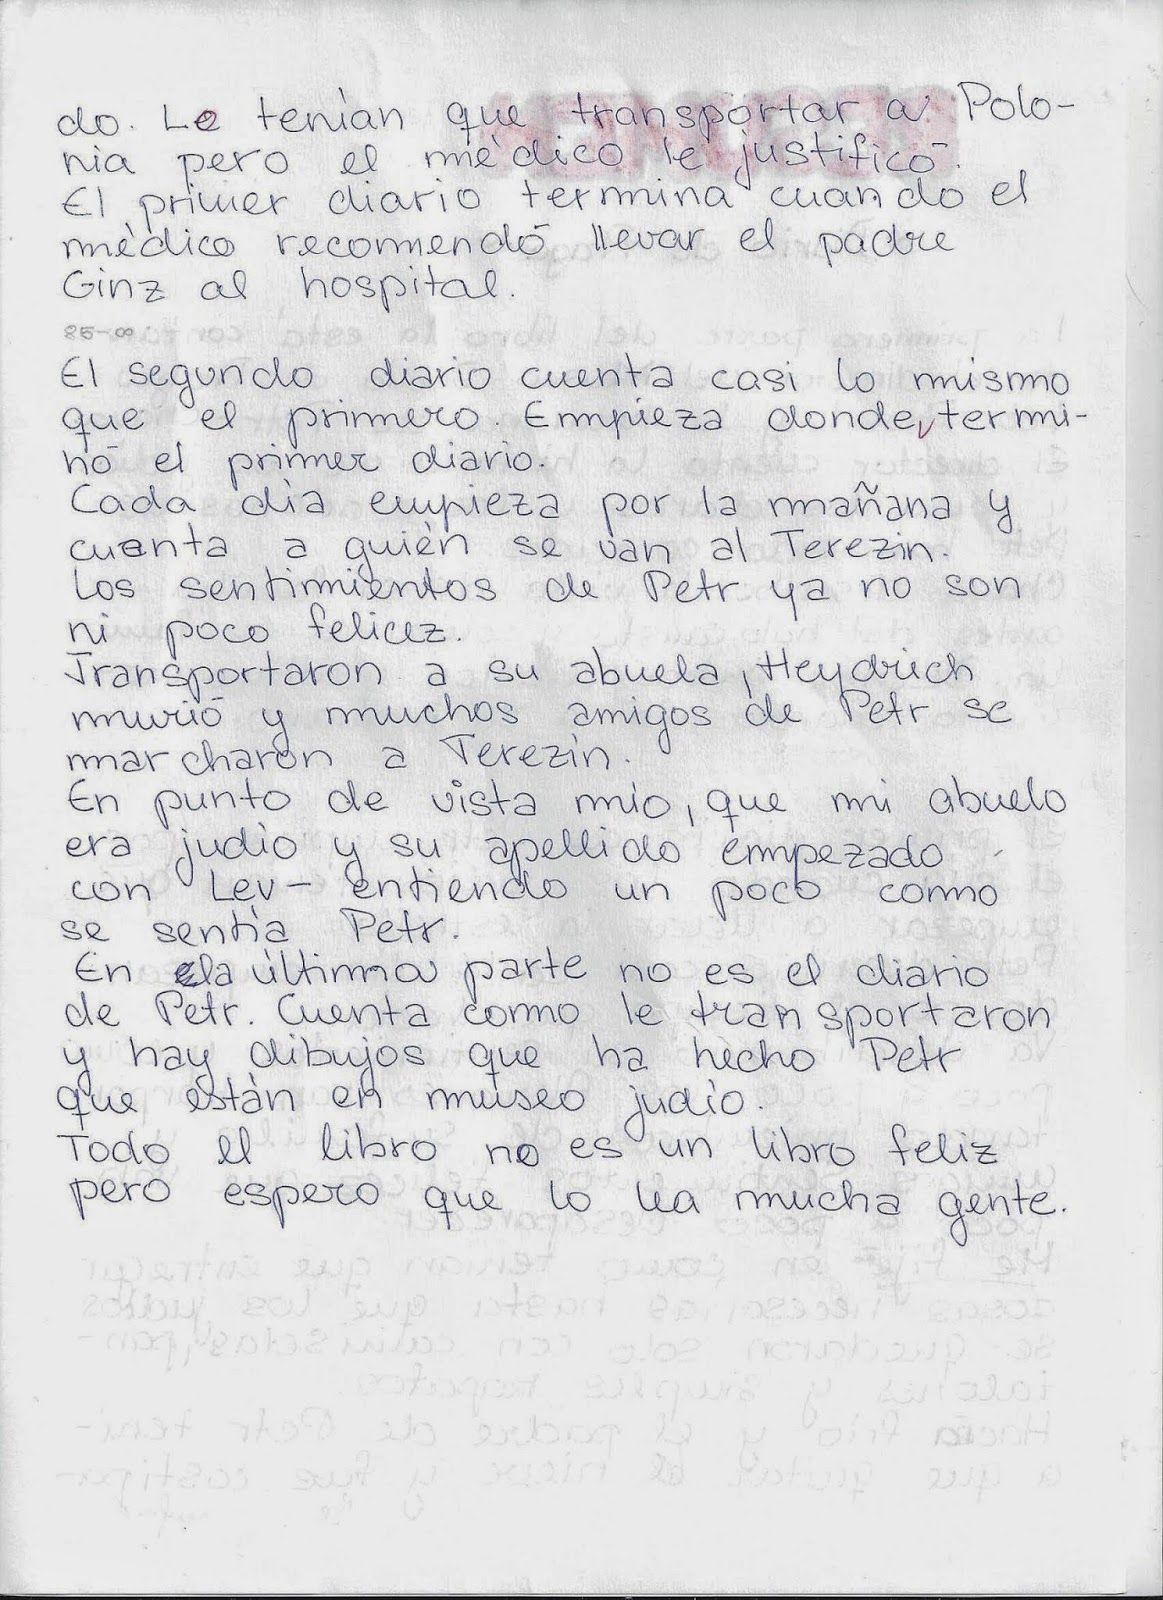 do. Le tenían que transportar a Polo-
nia pero el médico le justificó.
El primer diario termina cuando el
médico recomendó llevar el padre
Ginz al hospital.
85-∞
El segundo diario cuenta casi lo mismo
que el primero. Empieza donde termi-
nó el primer diario.
Cada día empieza por la mañana y
cuenta a quién se van al Terezin.
Los sentimientos de Petr ya no son
ni poco felicez.
Transportaron a su abuela, Heydrich
murió y muchos amigos de Petr se
marcharon a Terezín.
En punto de vista mío, que mi abuelo
era judío y su apellido empezado
con Lev- entiendo un poco como
se sentía Petr.
En la última parte no es el diario
de Petr. Cuenta como le transportaron
y hay dibujos que ha hecho Petr
que están en museo judío.
Todo el libro no es un libro feliz
pero espero que lo lea mucha gente.